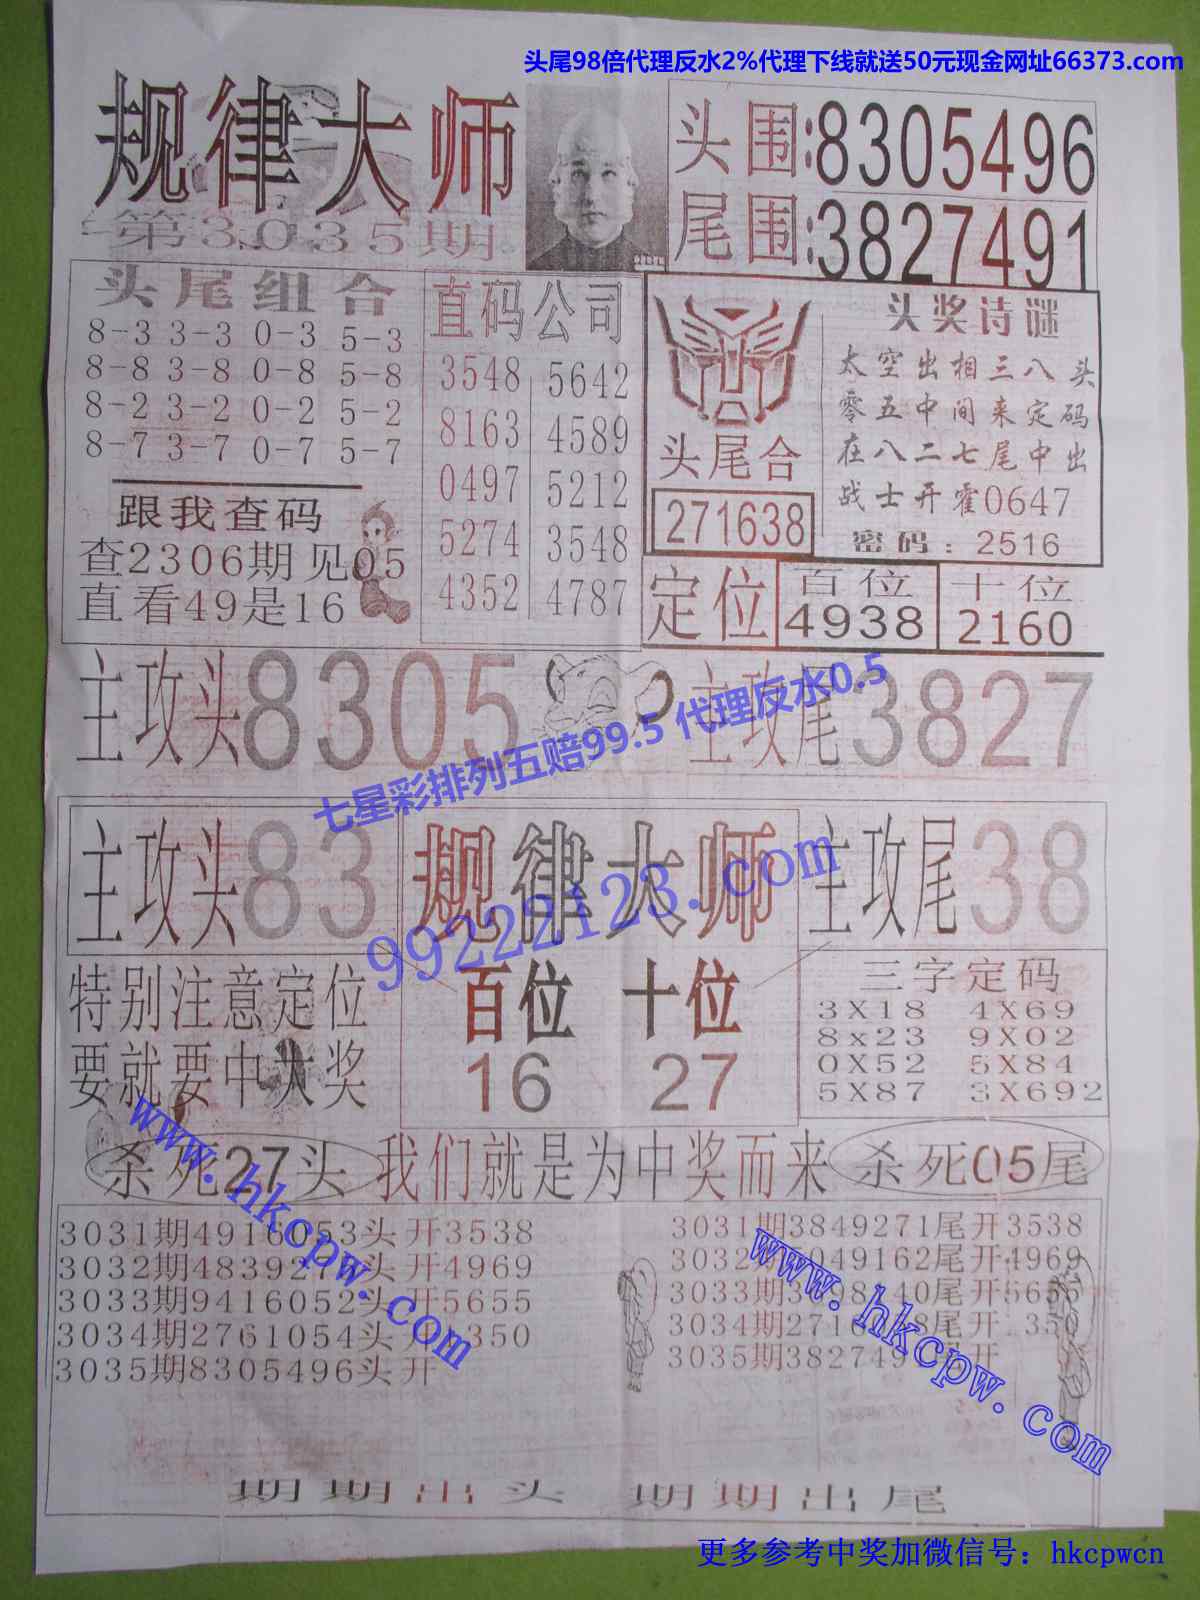 头尾98倍代理反水2%代理下线就送50元现金网址66373.com
规律大师
第3035期
头围:8305496
尾围:3827491
头尾组合
8-3 3-3 0-3 5-3
8-8 3-8 0-8 5-8
8-2 3-2 0-2 5-2
8-7 3-7 0-7 5-7
跟我查码
查2306期见05
直看49是16
直码公司
3548 5642
8163 4589
0497 5212
5274 3548
4352 4787
头尾合
271638
头奖诗谜
太空出相三八头
零五中间来定码
在八二七尾中出
战士开霍0647
密码:2516
定位
百位
4938
十位
2160
主攻头8305
主攻尾3827
七星彩排列五赔99.5 代理反水0.5
主攻头83
规律大师
主攻尾38
99222123.com
特别注意定位
要就要中大奖
百位 十位
16 27
三字定码
3X18 4X69
8x23 9X02
0X52 5X84
5X87 3X692
杀死27头
我们就是为中奖而来
杀死05尾
www.hkcpw.com
3031期4916053头开3538
3032期483927 头开4969
3033期9416052头开5655
3034期2761054头开 350
3035期8305496头开
3031期3849271尾开3538
3032 049162尾开4969
3033期3 98 40尾开5655
3034期2716 8尾开 350
3035期382749 尾开
www.hkcpw.com
期期出头 期期出尾
更多参考中奖加微信号：hkcpwcn